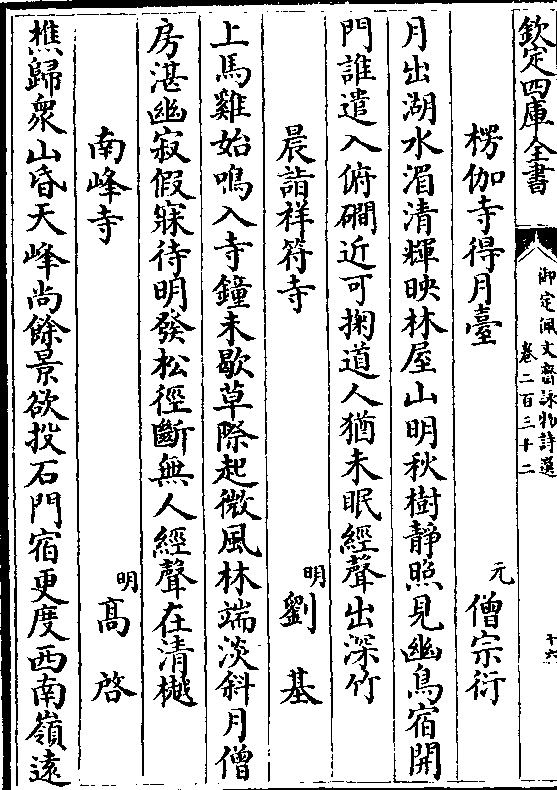 欽定四庫全書
御定佩文齋詠物詩選
卷二百三十二
十六
楞伽寺得月臺
元
僧宗衍
月出湖水湄清輝映林屋山明秋樹靜照見幽鳥宿開
門誰遣入俯磵近可掬道人猶未眠經聲出深竹
晨詣祥符寺
明
劉基
上馬雞始鳴入寺鐘未歇草際起微風林端淡斜月僧
房湛幽寂假寐待明發松徑斷無人經聲在清樾
南峰寺
明
高啓
樵歸衆山昏天峰尚餘景欲投石門宿更度西南嶺遠